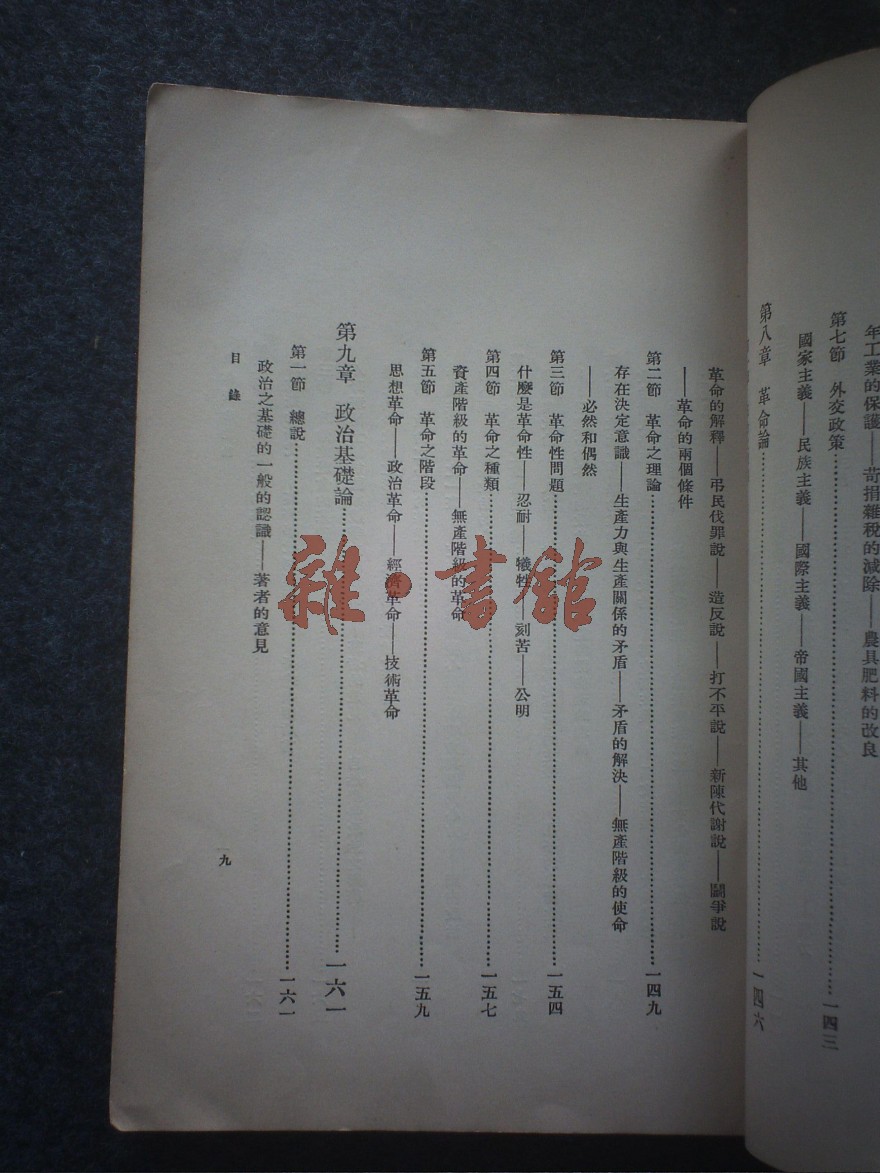 年工業的保護——苛捐雜稅的減除——農具肥料的改良
第七節　外交政策……一四三
國家主義——民族主義——國際主義——帝國主義——其他
第八章　革命論……一四六
革命的解釋——弔民伐罪說——造反說——打不平說——新陳代謝說——鬭爭說
——革命的兩個條件
第二節　革命之理論……一四九
存在決定意識——生產力與生產關係的矛盾——矛盾的解決——無產階級的使命
——必然和偶然
第三節　革命性問題……一五四
什麼是革命性——忍耐——犧牲——刻苦——公明
第四節　革命之種類……一五七
資產階級的革命——無產階級的革命
第五節　革命之階段……一五九
思想革命——政治革命——經濟革命——技術革命
第九章　政治基礎論……一六一
第一節　總說……一六一
政治之基礎的一般的認識——著者的意見
目錄
九
雜·書館